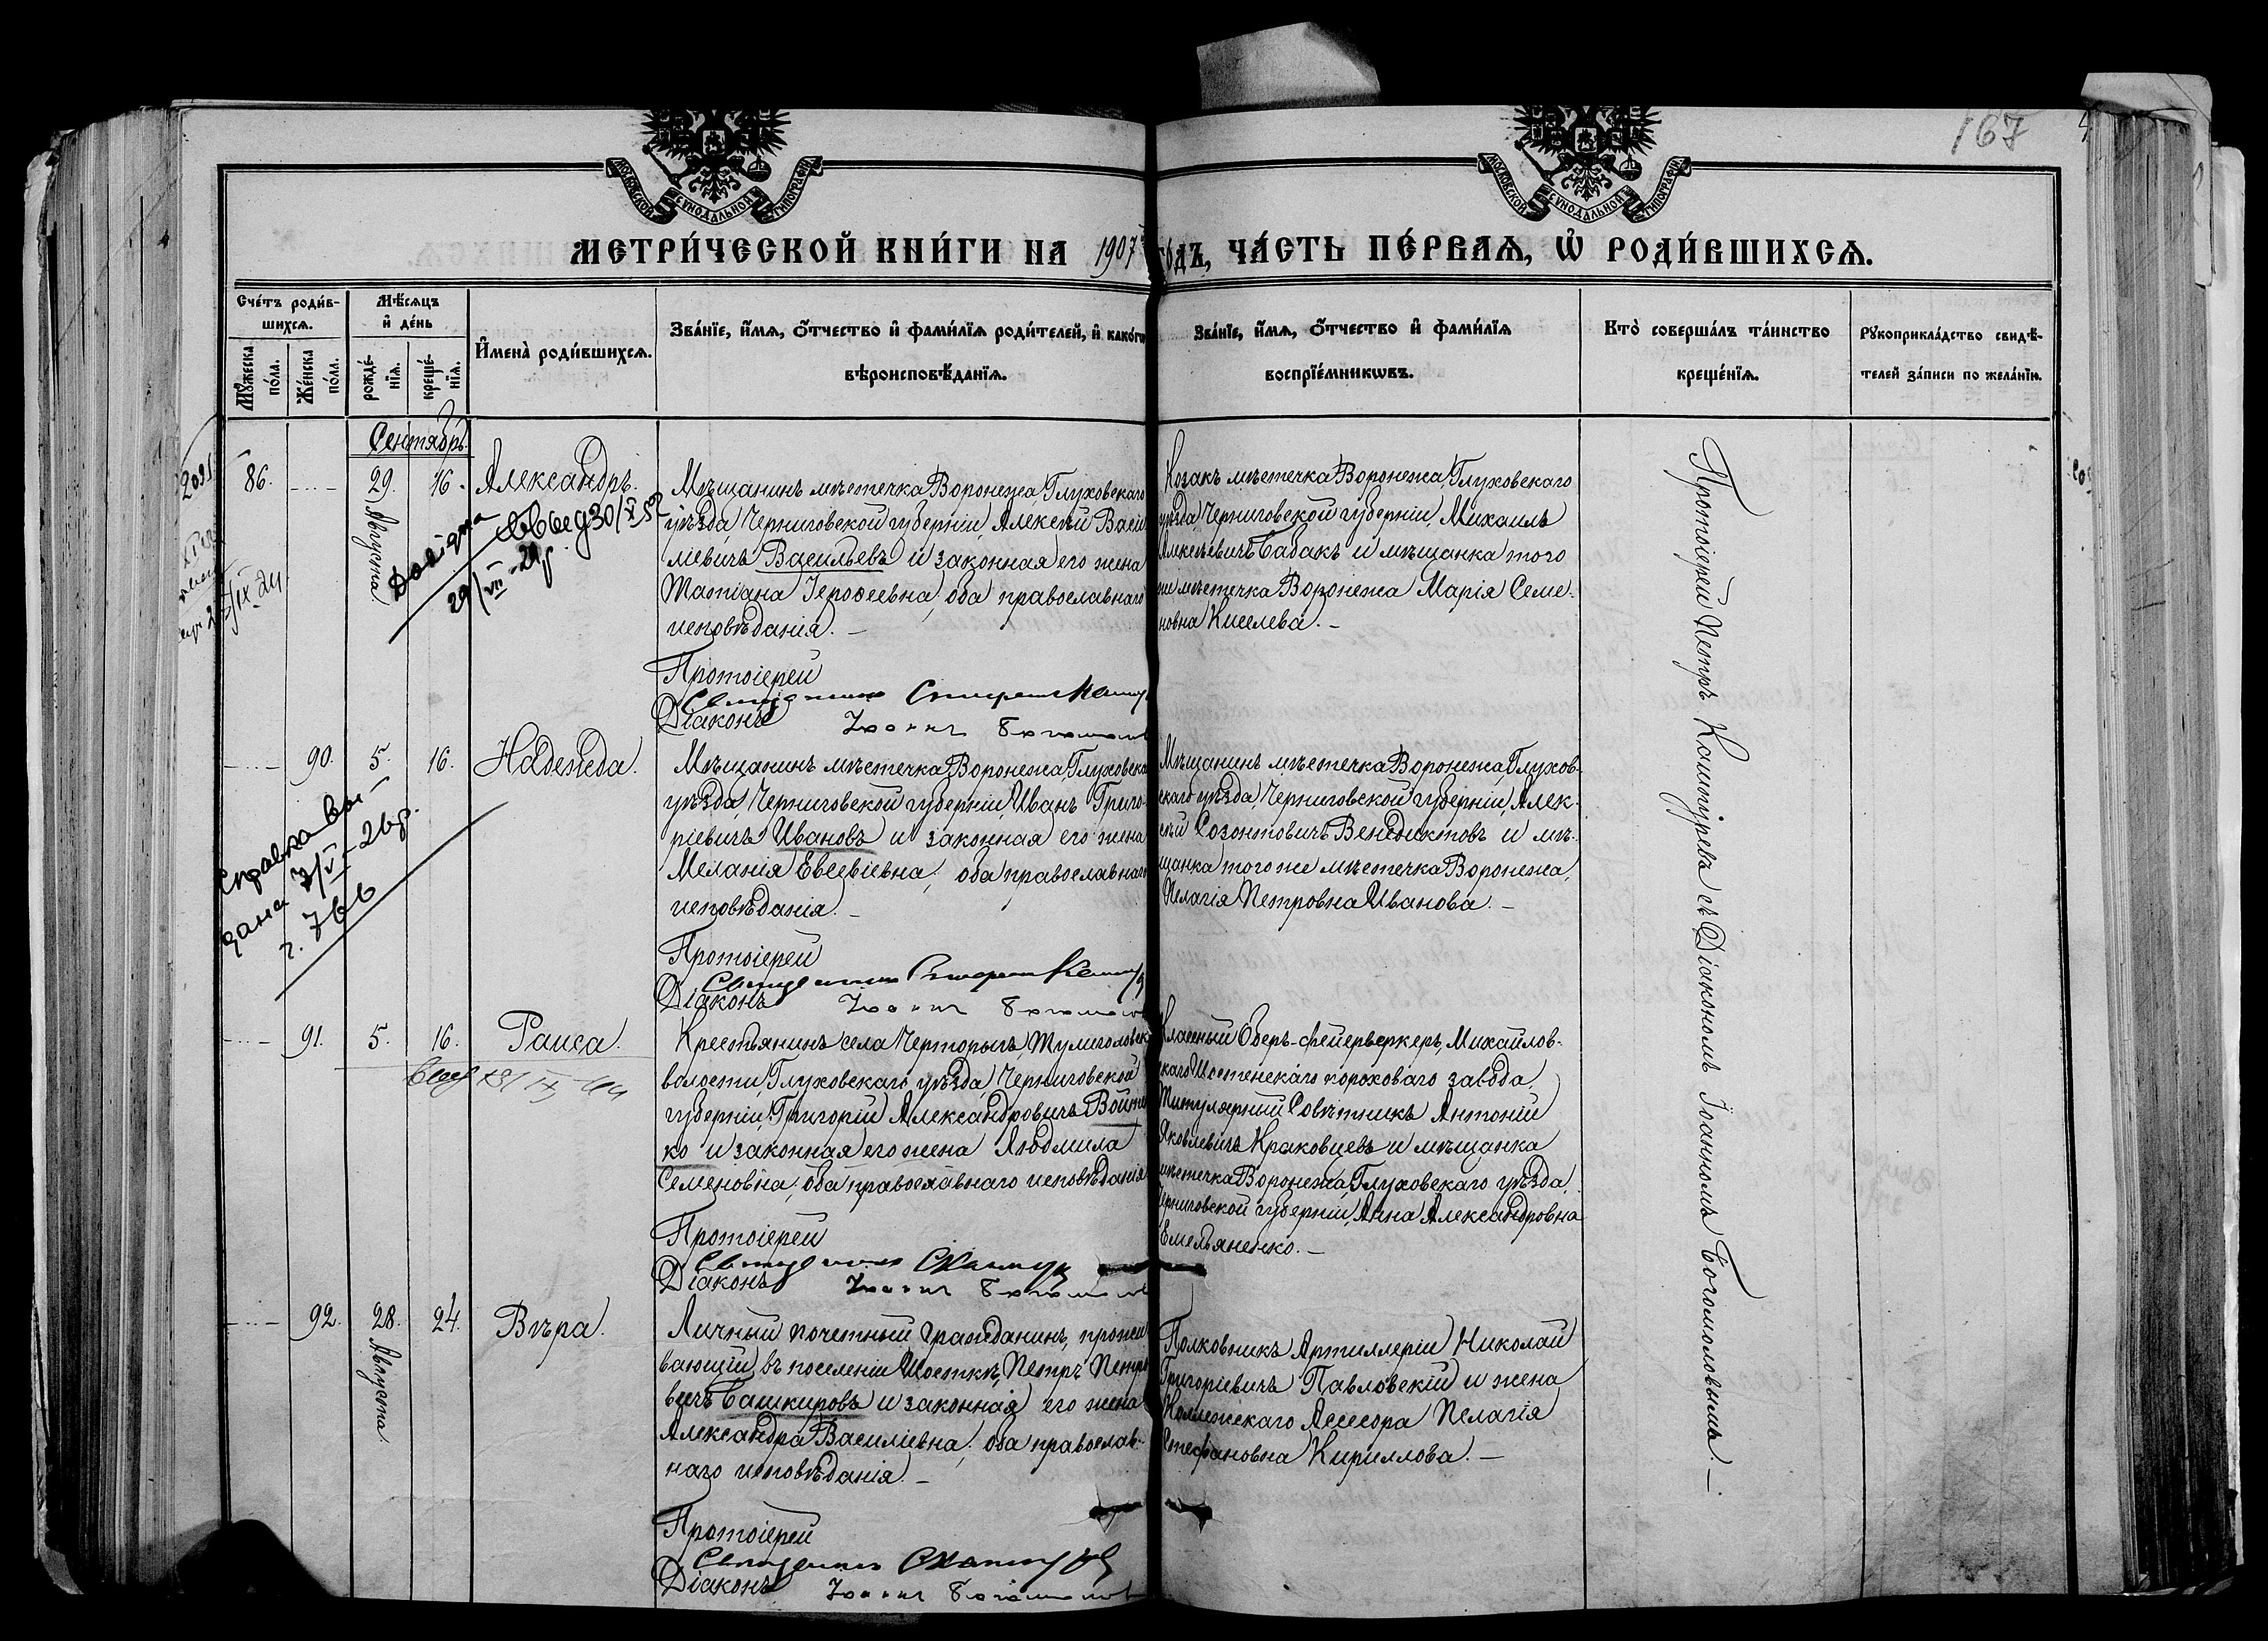 167
МОСКОВСКОЙ СУНОДАЛЬНОЙ ТИПОГРАФІИ
МОСКОВСКОЙ СУНОДАЛЬНОЙ ТИПОГРАФІИ
МЕТРИ́ЧЕСКОЙ КНИ́ГИ НА 1907 го́дъ, ЧА́СТЬ ПЕ́РВАѦ, Ѽ РОДИ́ВШИХСѦ.
Сче́тъ роди́в-
шихсѧ.
Мꙋ́жеска
по́ла.
Же́нска
по́ла.
Мѣ́сѧцъ
и҆ де́нь
рожде́-
нїѧ.
креще́-
нїѧ.
И҆мена̀ роди́вшихсѧ.
Зва́нїе, и҆́мѧ, ѻ҆́тчество и҆ фами́лїѧ роди́телей, и҆ како́гѡ
вѣроисповѣ́данїѧ.
Зва́нїе, и҆́мѧ, ѻ҆́тчество и҆ фами́лїѧ
воспрїе́мникѡвъ.
Кто̀ соверша́лъ та́инство
креще́нїѧ.
Рꙋкоприкла́дство свидѣ́-
телей за́писи по жела́нїю.
Сентябрь.
86.
29. Августа.
16.
Александръ.
Мѣщанинъ мѣстечка Воронежа, Глуховскаго
уѣзда, Черниговской губерніи, Алексѣй Васи
ліевичъ Васильевъ и законная его жена
Татіана Іероѳеевна, оба православнаго
исповѣданія. —
Протоіерей
Діаконъ
Козакъ мѣстечка Воронежа, Глуховскаго
уѣзда, Черниговской губерніи, Михаилъ
Алексѣевичъ Бабакъ и мѣщанка того
же мѣстечка Воронежа Марія Семе-
новна Киселева. —
90.
5.
16.
Надежда.
Мѣщанинъ мѣстечка Воронежа, Глуховска
уѣзда, Черниговской губерніи, Иванъ Григо-
ріевичъ Ивановъ и законная его жена
Меланія Евсевіевна; оба православнаго
исповѣданія. —
Протоіерей
Діаконъ
Мѣщанинъ мѣстечка Воронежа, Глухов-
скаго уѣзда, Черниговской губерніи, Алек-
сѣй Созонтовичъ Венедиктовъ и мѣ-
щанка того же мѣстечка Воронежа,
Пелагія Петровна Иванова. —
Справка вы-
дана 7/V-26р.
г. 766
91.
5.
16.
Раиса.
Крестьянинъ села Черторыгъ, Тулиголовск
волости, Глуховскаго уѣзда, Черниговской
губерніи, Григорій Александровичъ Войтен
ко и законная его жена Людмила
Семеновна; оба православнаго исповѣданія
Протоіерей
Діаконъ
Класный Оберъ-фейерверкеръ, Михайлов-
скаго Шостенскаго пороховаго завода,
Титулярный Совѣтникъ Антоній
Яковлевичъ Краковцевъ и мѣщанка
мѣстечка Воронежа, Глуховскаго уѣзда,
Черниговской губерніи, Анна Александровна
Емельяненко. —
92.
28. Августа.
24.
Вѣра.
Личный почетный гражданинъ, прожи
вающій въ поселеніи Шосткѣ, Петръ Петро
вичъ Башкировъ и законная его жена
Александра Василіевна; оба православ-
наго исповѣданія. —
Протоіерей
Діаконъ
Полковникъ Артиллеріи Николай
Григоріевичъ Павловскій и жена
Коллежскаго Асессора Пелагія
Стефановна Кириллова. —
Протоіерей Петръ Каштуревъ съ Діакономъ Іоанномъ Богомоловымъ. —